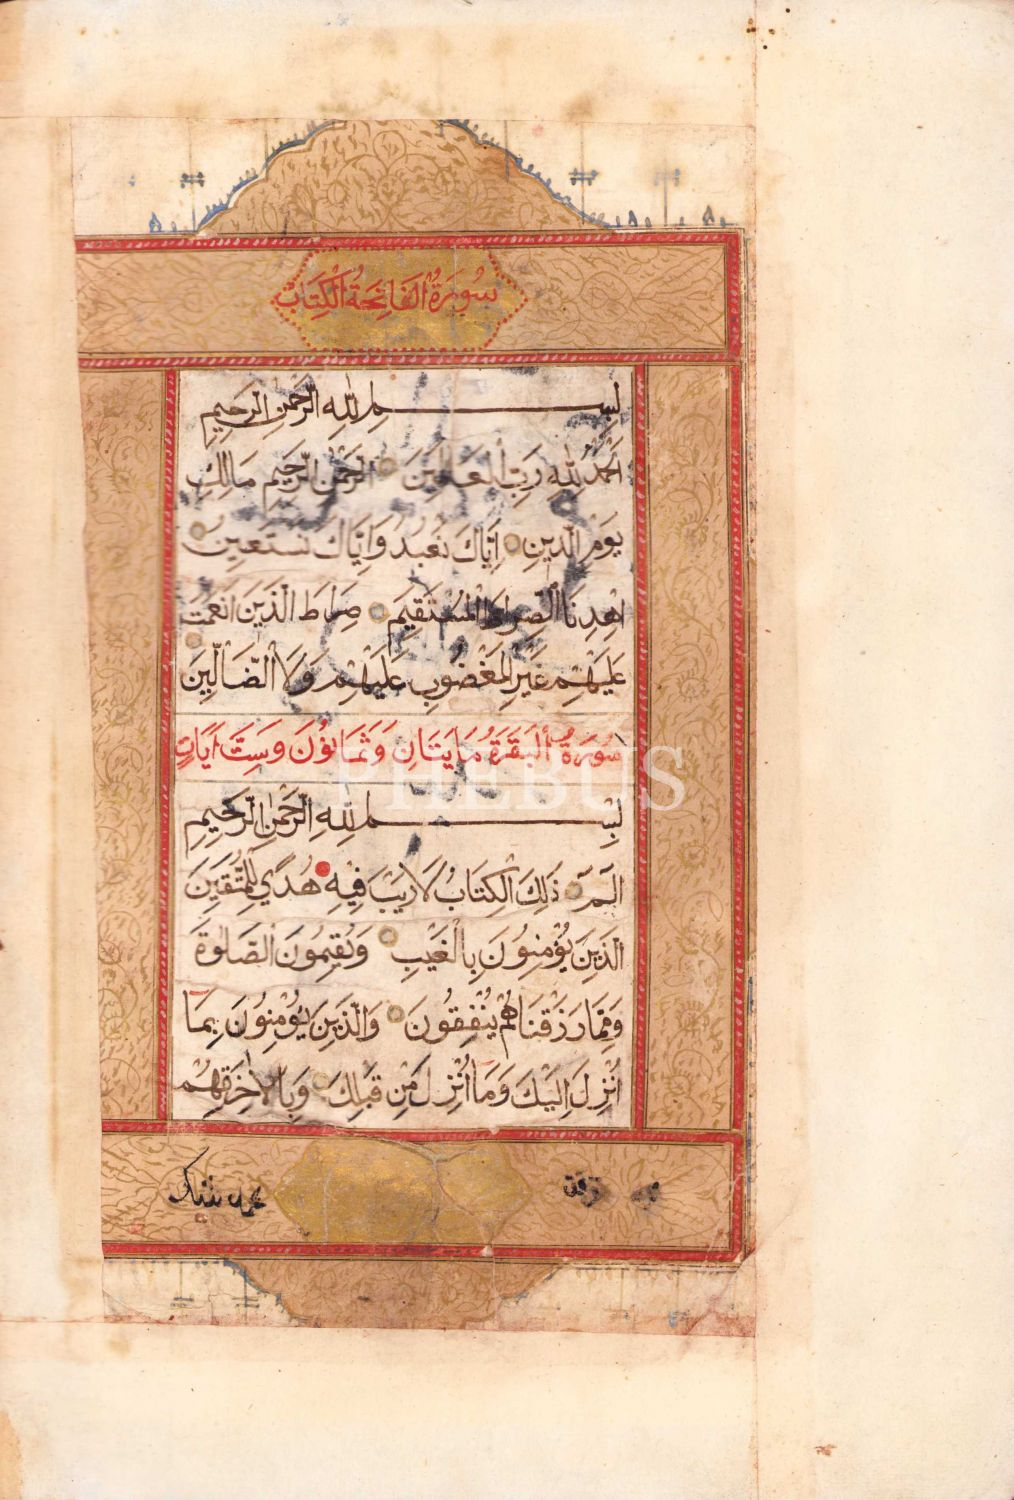 سُورَةُ الفَاتِحَةُ الْكِتَابِ
بِسْمِ اللهِ الرَّحْمٰنِ الرَّحِيمِ
اَلْحَمْدُ لِلّٰهِ رَبِّ الْعَالَمِينَ الرَّحْمٰنِ الرَّحِيمِ مَالِكِ
يَوْمِ الدِّينِ اِيَّاكَ نَعْبُدُ وَاِيَّاكَ نَسْتَعِينُ
اِهْدِنَا الصِّرَاطَ الْمُسْتَقِيمَ صِرَاطَ الَّذِينَ اَنْعَمْتَ
عَلَيْهِمْ غَيْرِ الْمَغْضُوبِ عَلَيْهِمْ وَلَا الضَّالِّينَ
سُورَةُ الْبَقَرَةُ مَايَتَانِ وَثَمَانُوْنَ وَسِتَّ اٰيَاتٍ
PHEBUS
بِسْمِ اللهِ الرَّحْمٰنِ الرَّحِيمِ
الٓمٓ ذٰلِكَ الْكِتَابُ لَا رَيْبَ فِيْهِ هُدًي لِلْمُتَّقِينَ
الَّذِينَ يُؤْمِنُونَ بِالْغَيْبِ وَيُقِيمُونَ الصَّلٰوةَ
وَمِمَّا رَزَقْنَاهُمْ يُنْفِقُونَ وَالَّذِينَ يُؤْمِنُونَ بِمَا
اُنْزِلَ اِلَيْكَ وَمَا اُنْزِلَ مِنْ قَبْلِكَ وَبِالْاٰخِرَةِ هُمْ